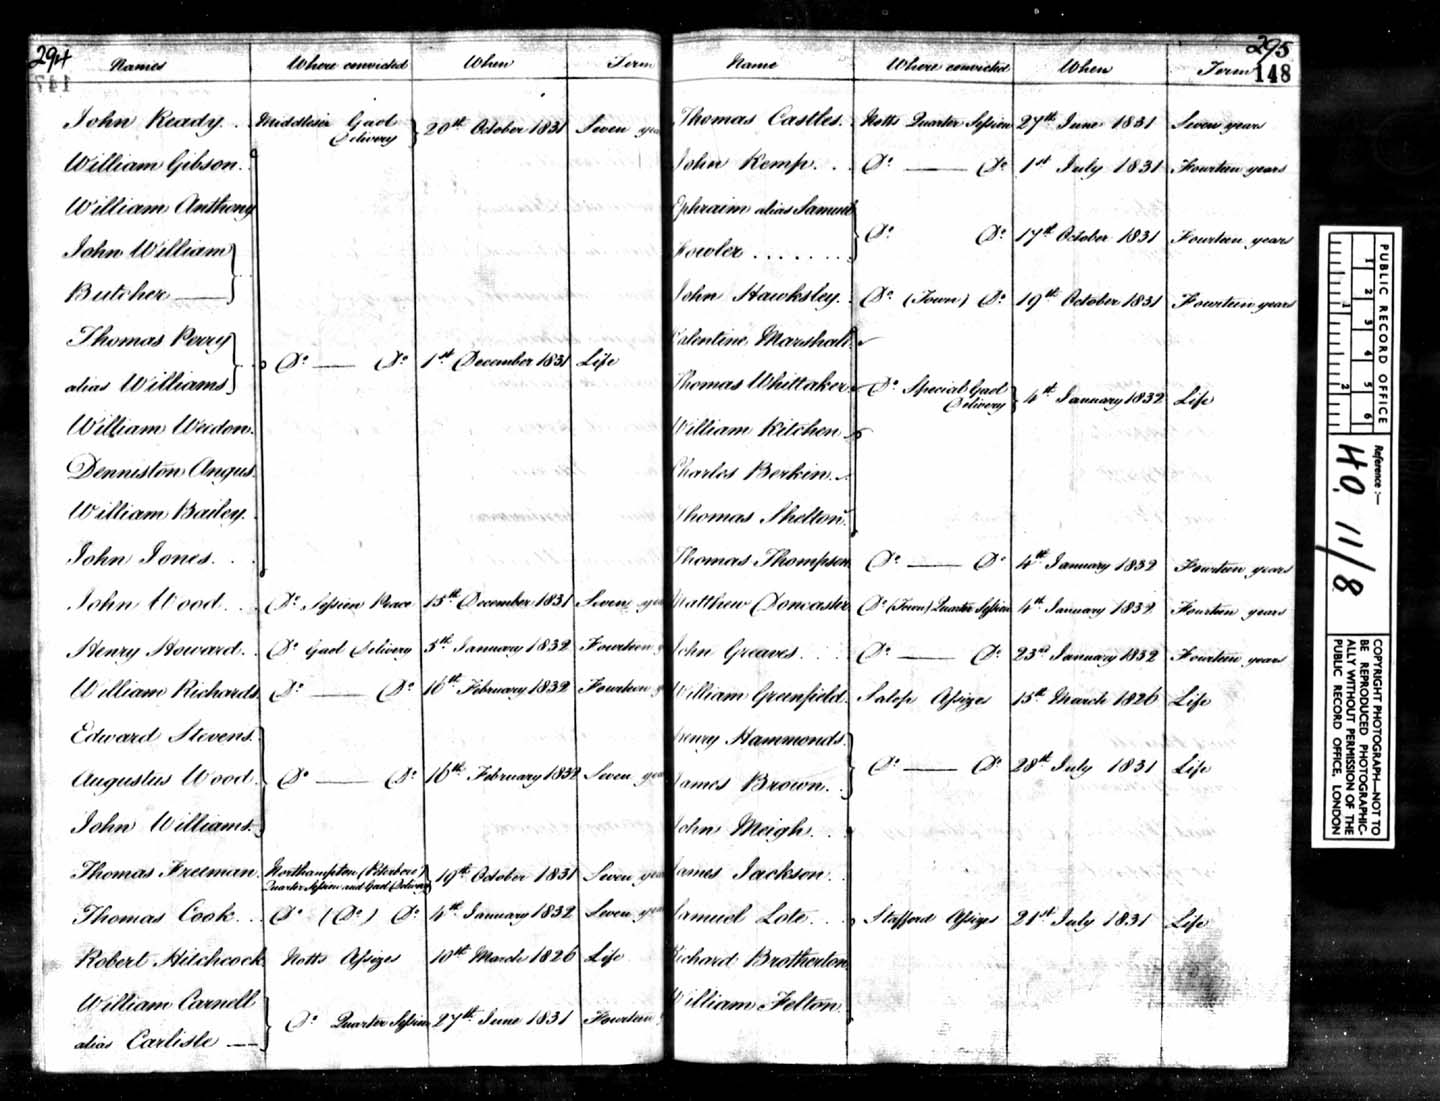 294
147
Names Where convicted When Term
John Ready. Middlesex Gaol Delivery 20th October 1831 Seven yea
William Gibson.
William Anthony
John William
Butcher
Thomas Perry
alias Williams Do. Do. 1st December 1831 Life
William Weedon.
Denniston Angus.
William Bailey.
John Jones.
John Wood. Do. Session Peace 15th December 1831 Seven yea
Henry Howard. Do. Gaol Delivery 5th January 1832 Fourteen y
William Richards Do. Do. 16th February 1832 Fourteen y
Edward Stevens.
Augustus Wood. Do. Do. 16th February 1832 Seven yea
John Williams.
Thomas Freeman. Northampton (Peterboro')
Quarter Session and Gaol Delivery 19th October 1831 Seven yea
Thomas Cook. Do. (Do.) Do. 4th January 1832 Seven yea
Robert Hitchcock Notts Assizes 10th March 1826 Life
William Carnell
alias Carlisle Do. Quarter Session 27th June 1831 Fourteen y
295
148
Name Where convicted When Term
Thomas Castles. Notts Quarter Session 27th June 1831 Seven years
John Kemp. Do. Do. 1st July 1831 Fourteen years
Ephraim alias Samuel
Fowler Do. Do. 17th October 1831 Fourteen years
John Hawksley. Do. (Town) Do. 19th October 1831 Fourteen years
Valentine Marshall.
Thomas Whittaker Do. Special Gaol Delivery 4th January 1832 Life
William Kitchen
Charles Berkin.
Thomas Shelton.
Thomas Thompson Do. Do. 4th January 1832 Fourteen years
Matthew Doncaster Do. (Town) Quarter Session 4th January 1832 Fourteen years
John Greaves. Do. Do. 23rd January 1832 Fourteen years
William Greenfield. Salop Assizes 15th March 1826 Life
Henry Hammonds.
James Brown. Do. Do. 28th July 1831 Life
John Meigh.
James Jackson.
Samuel Lote. Stafford Assizes 21st July 1831 Life
Richard Brotherton
William Felton.
PUBLIC RECORD OFFICE
1 2 3 4 5 6
1 2
Reference:-
HO 11/8
COPYRIGHT PHOTOGRAPH—NOT TO
BE REPRODUCED PHOTOGRAPHIC-
ALLY WITHOUT PERMISSION OF THE
PUBLIC RECORD OFFICE, LONDON